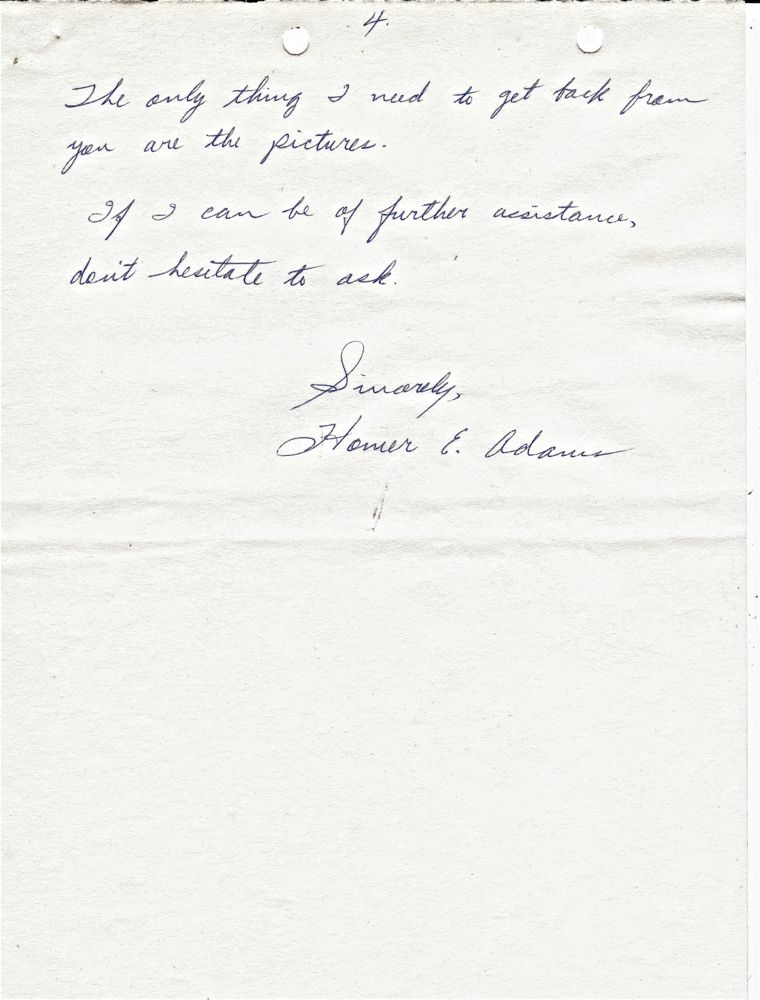 4.
The only thing I need to get back from
you are the pictures.
If I can be of further assistance,
don't hesitate to ask.
Sincerely,
Homer E. Adams